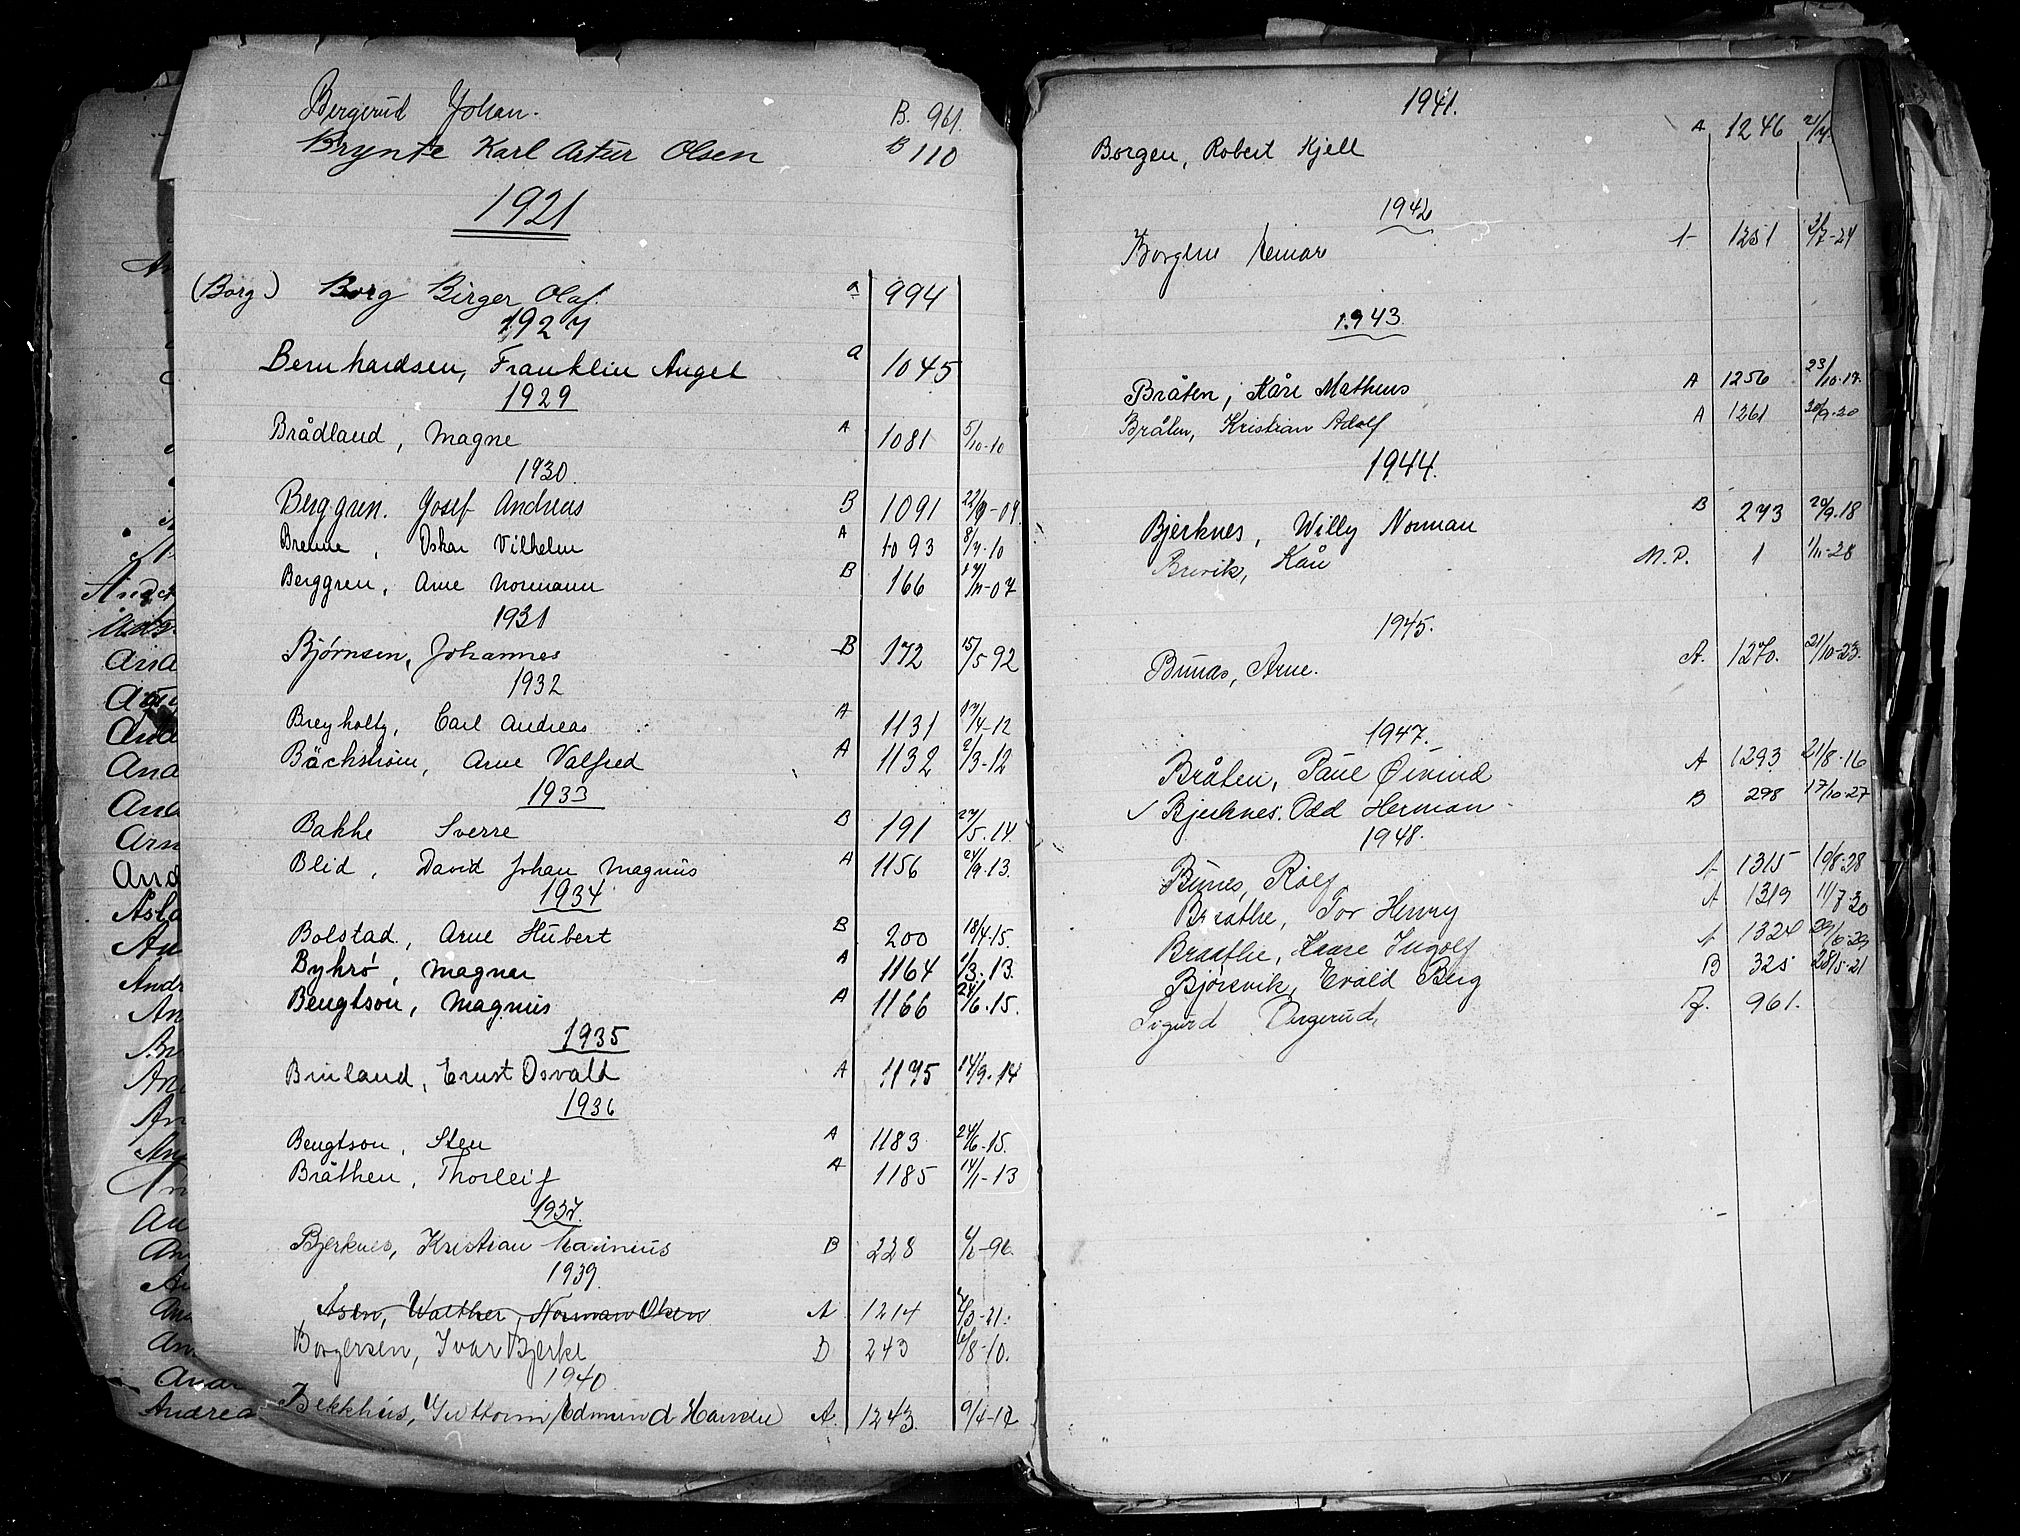 Bergerud Johan. B. 961.
Brynte Karl Artur Olsen B 110
1921
(Borg.) Borg Birger Olaf. a 994
1927
Bernhardsen, Franklin Angel a 1045
1929
Brådland, Magne A 1081 5/10-10
1930.
Berggren. Josef Andreas B 1091 22/9-04
Brenne, Oskar Vilhelm A 1093 8/7-10
Berggren, Arne Normann B 166
1931
Bjørnsen, Johannes B 172 15/5 92
1932
Breyholtz, Carl Andreas A 1131 17/4-12
Bäckstrøm, Arne Valfred A 1132 2/3-12
1933
Bakke Sverre B 191 27/5.14
Blid, David Johan Magnus A 1156 24/9.13.
1934
Bolstad, Arne Hubert B 200 18/4.15.
Byhrø, Magnar A 1164 1/3.13.
Bengtson, Magnus A 1166 24/6.15.
1935
Bruland, Ernst Osvald A 1175 14/9.14
1936
Bengtson, Sten A 1183 24/6.15.
Bråthen, Thorleif A 1185 14/1-13
1937.
Bjerknes, Kristian Marinius B 228
1939.
Åsen, Walther Norman Olsen A 1214 7/3-21.
Borgersen, Ivar Bjerke B 243 6/8-10.
1940
Bekkhus, Guttorm Edmund A. 1243. 9/4-17
1941.
Borgen, Robert Kjell A 1246
1942
Borgen Reinar A 1251
1943.
Bråten, Kåre Matheus A 1256 23/10.17.
Bråten, Kristian Adolf A 1261 30/9-20
1944.
Bjerknes, Willy Norman B 273 20/9.18
Brevik, Kåre M.P. 1 1/11-28
1945.
Bunæs, Arne. A. 1270. 21/10-23.
1947.
Bråten, Paul Øivind A 1293 21/8-16
✓ Bjerknes. Odd Herman B 298 17/10-27
1948.
Bunes, Rolf A 1315 19/8-28
Braathe, Tor Henry A 1319 11/7-30
Braathe, Kaare Ingolf A 1324 29/6-29
Bjørsvik, Evald Berg B 325 28/5-21
Sigurd Bergerud, F. 961.